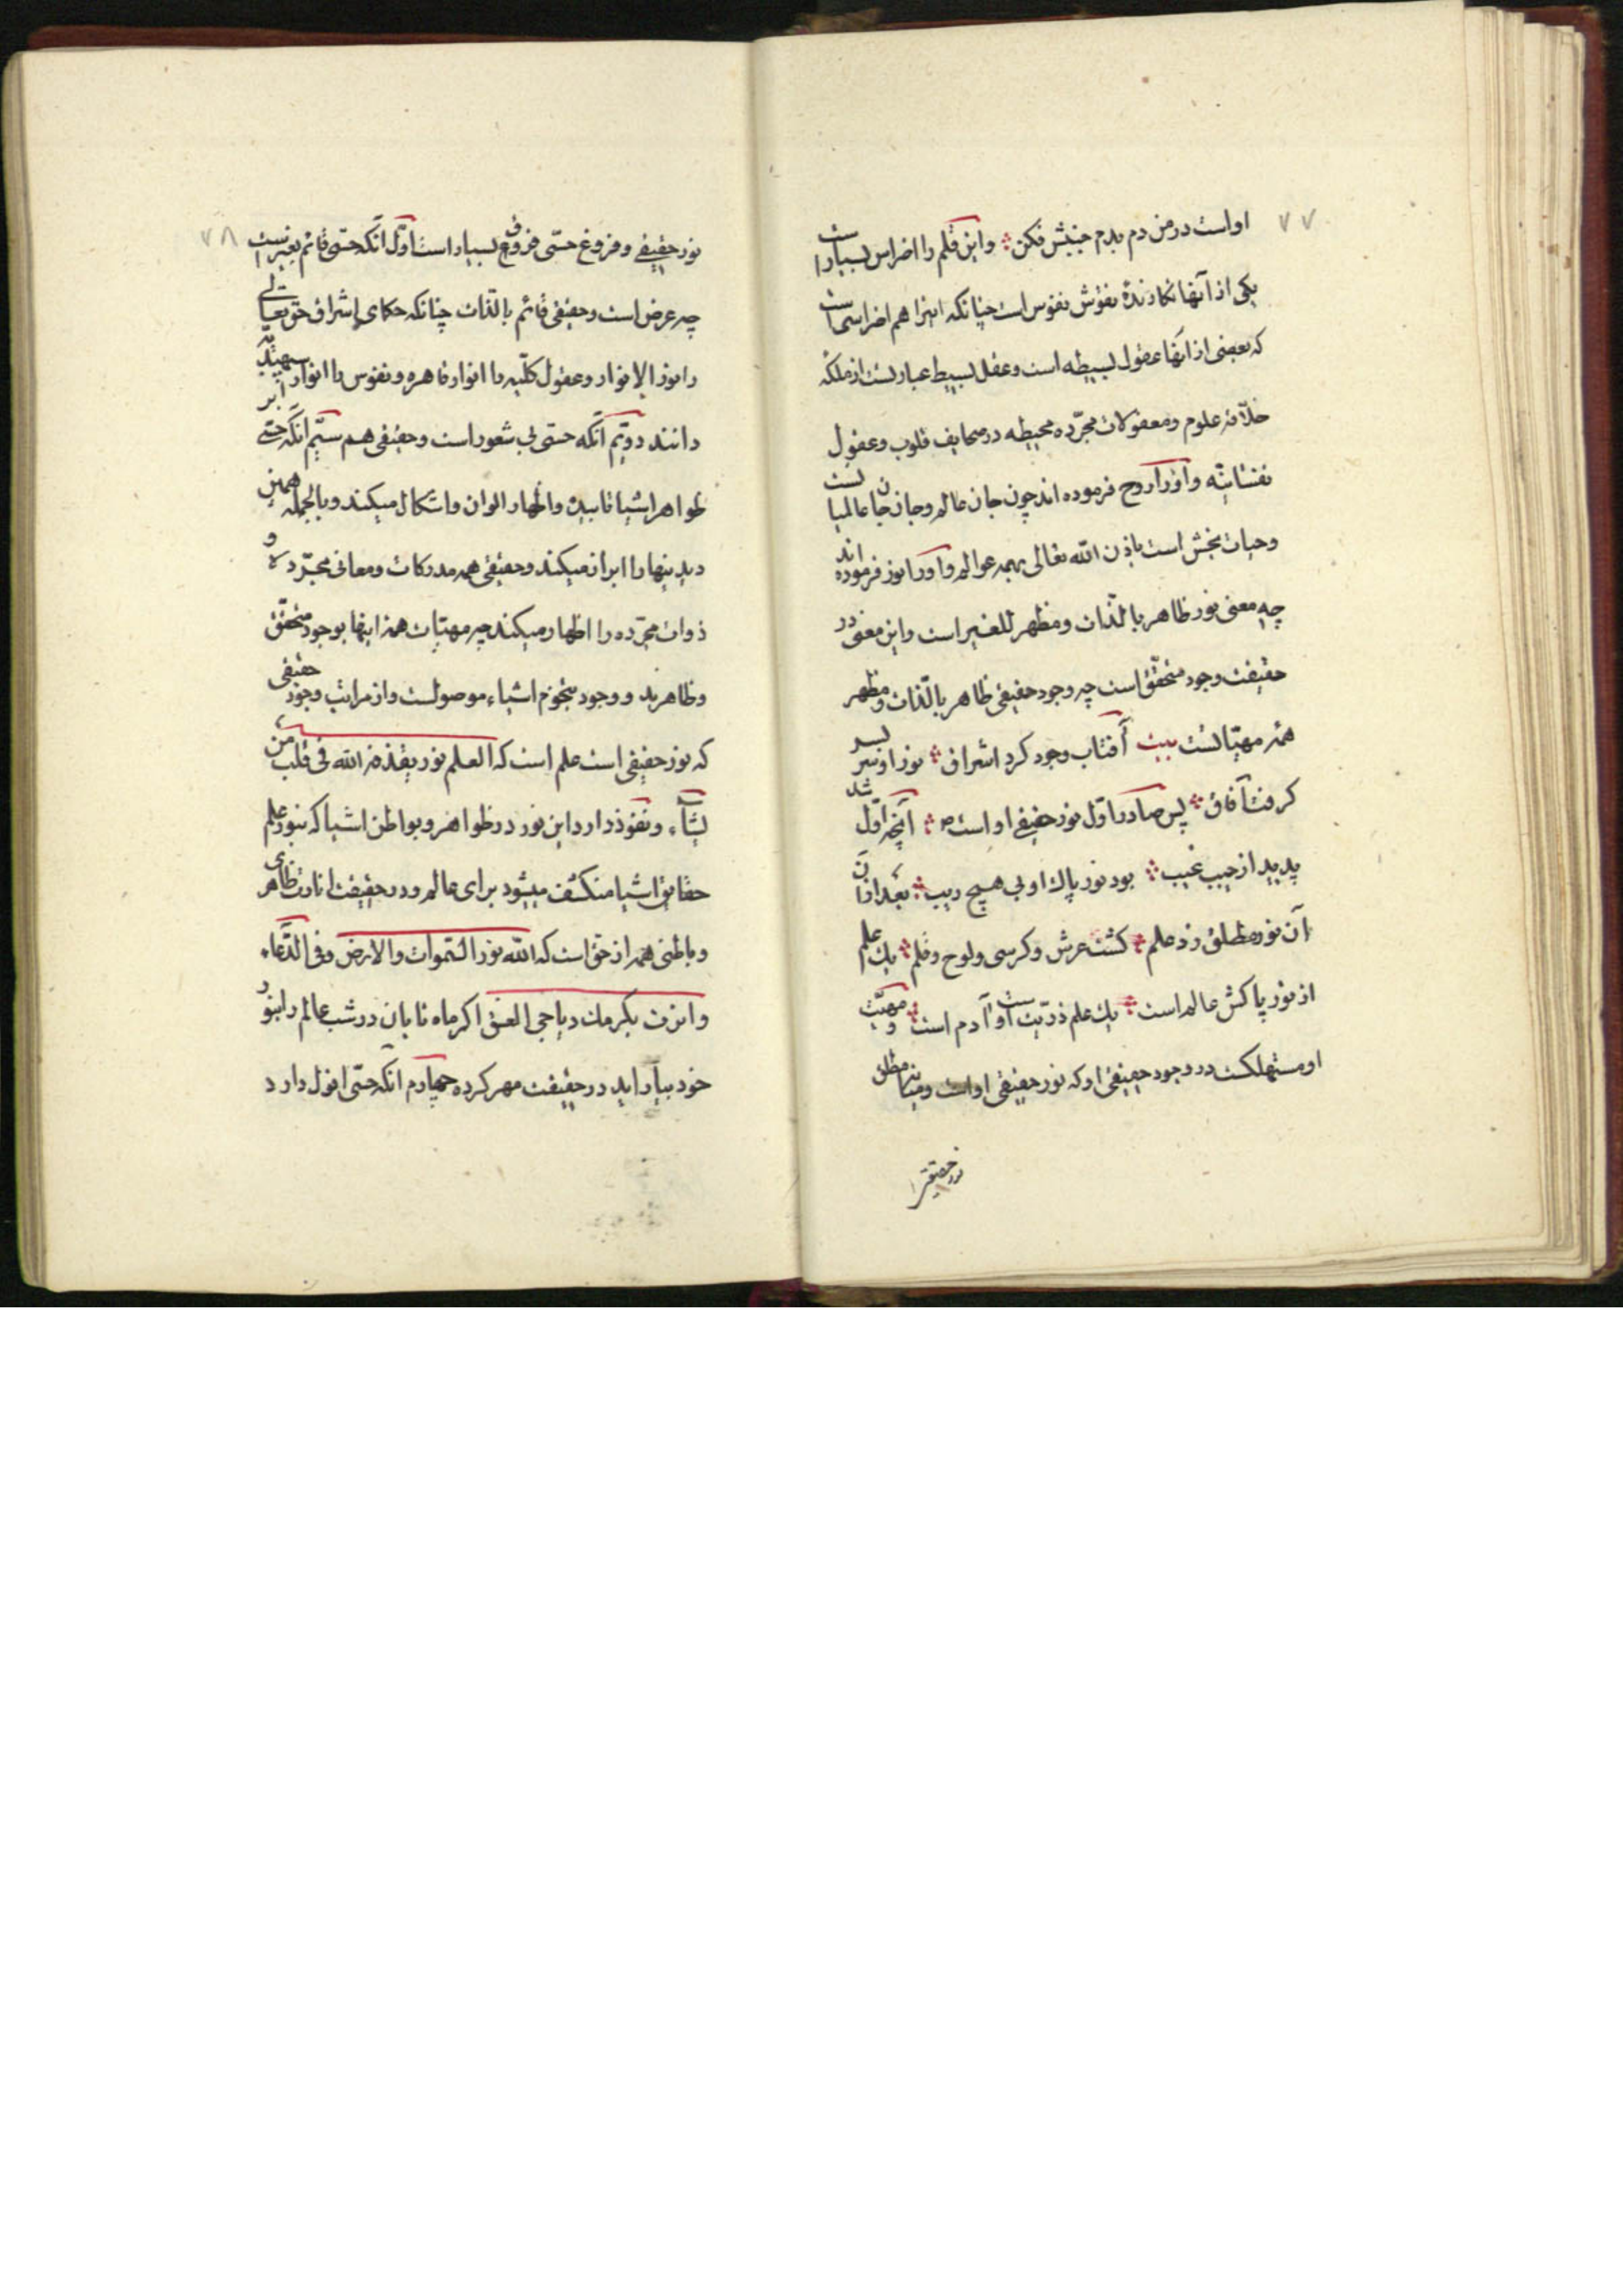 ۷۷
او است در من دم بدم جنبش فکن ❊ و این قلم را اضراس بسیار است
یکی از آنها نگارندهٔ نقوش نفوس است چنانکه اینرا هم اضراسهاست
که بعضی از آنها عقول بسیطه است و عقل بسیط عبارتست از ملکه
خلاقه علوم و معقولات مجرّده محیطه در صحایف قلوب و عقول
نفسانیّه و او را روح فرموده‌اند چون جان عالم و جان جان عالمیانست
و حیات بخش است باذن الله تعالی بهمه عوالم و او را نور فرموده‌اند
چه معنی نور ظاهر بالذّات و مظهر للغیر است و این معنی در
حقیقت وجود متحقّق است چه وجود حقیقی ظاهر بالذّات و مظهر
همه مهیّاتست بیت آفتاب وجود کرد اشراق ❊ نور او سر بسر
گرفت آفاق ❊ پس صادر اوّل نور حقیقی او است ص ❊ آنچه اوّل شد
پدید از جیب غیب ❊ بود نور پاک او بی هیچ ریب ❊ بعد ازان
آن نور مطلق زد علم ❊ گشت عرش و کرسی و لوح و قلم ❊ یک علم
از نور پاکش عالم است ❊ یک علم ذرّیت است و آدم است ❊ و مهیّت
او مستهلکست در وجود حقیقی او که نور حقیقی او است و میانه مطلق
نور حقیقی را
۷۸
نور حقیقی و فروغ حسّی فروق بسیار است اوّل آنکه حسّی قائم بغیر است
چه عرض است و حقیقی قائم بالذّات چنانکه حکمای اشراق حق تعالی
را نور الانوار و عقول کلّیه را انوار قاهره و نفوس را انوار اسپهبدیّه
دانند دویّم آنکه حسّی بی شعور است و حقیقی هم سیّم آنکه حسّی
ظواهر اشیا تابیده و اظهار الوان و اشکال میکند و بالجمله همین
دیدنیها را ابراز میکند و حقیقی همه مدرکات و معانی مجرّده و
ذوات مجرّده را اظهار میکند چه مهیّات همه اینها بوجود متحقّق
و ظاهرند و وجود بتخوم اشیاء موصولست و از مراتب وجود حقیقی
که نور حقیقی است علم است که العلم نور یقذفه الله فی قلب من
یشآء و نفوذ دارد این نور در ظواهر و بواطن اشیا که بنور علم
حقایق اشیا منکشف میشود برای عالم و در حقیقت انارت ظاهری
و باطنی همه از حق است که الله نور السّموات والارض و فی الدّعاء
و انرت بکرمک دیاجی الغسق اگر ماه تابان در شب عالم را بنور
خود بیاراید در حقیقت مهر کرده چهارم آنکه حسّی افول دارد